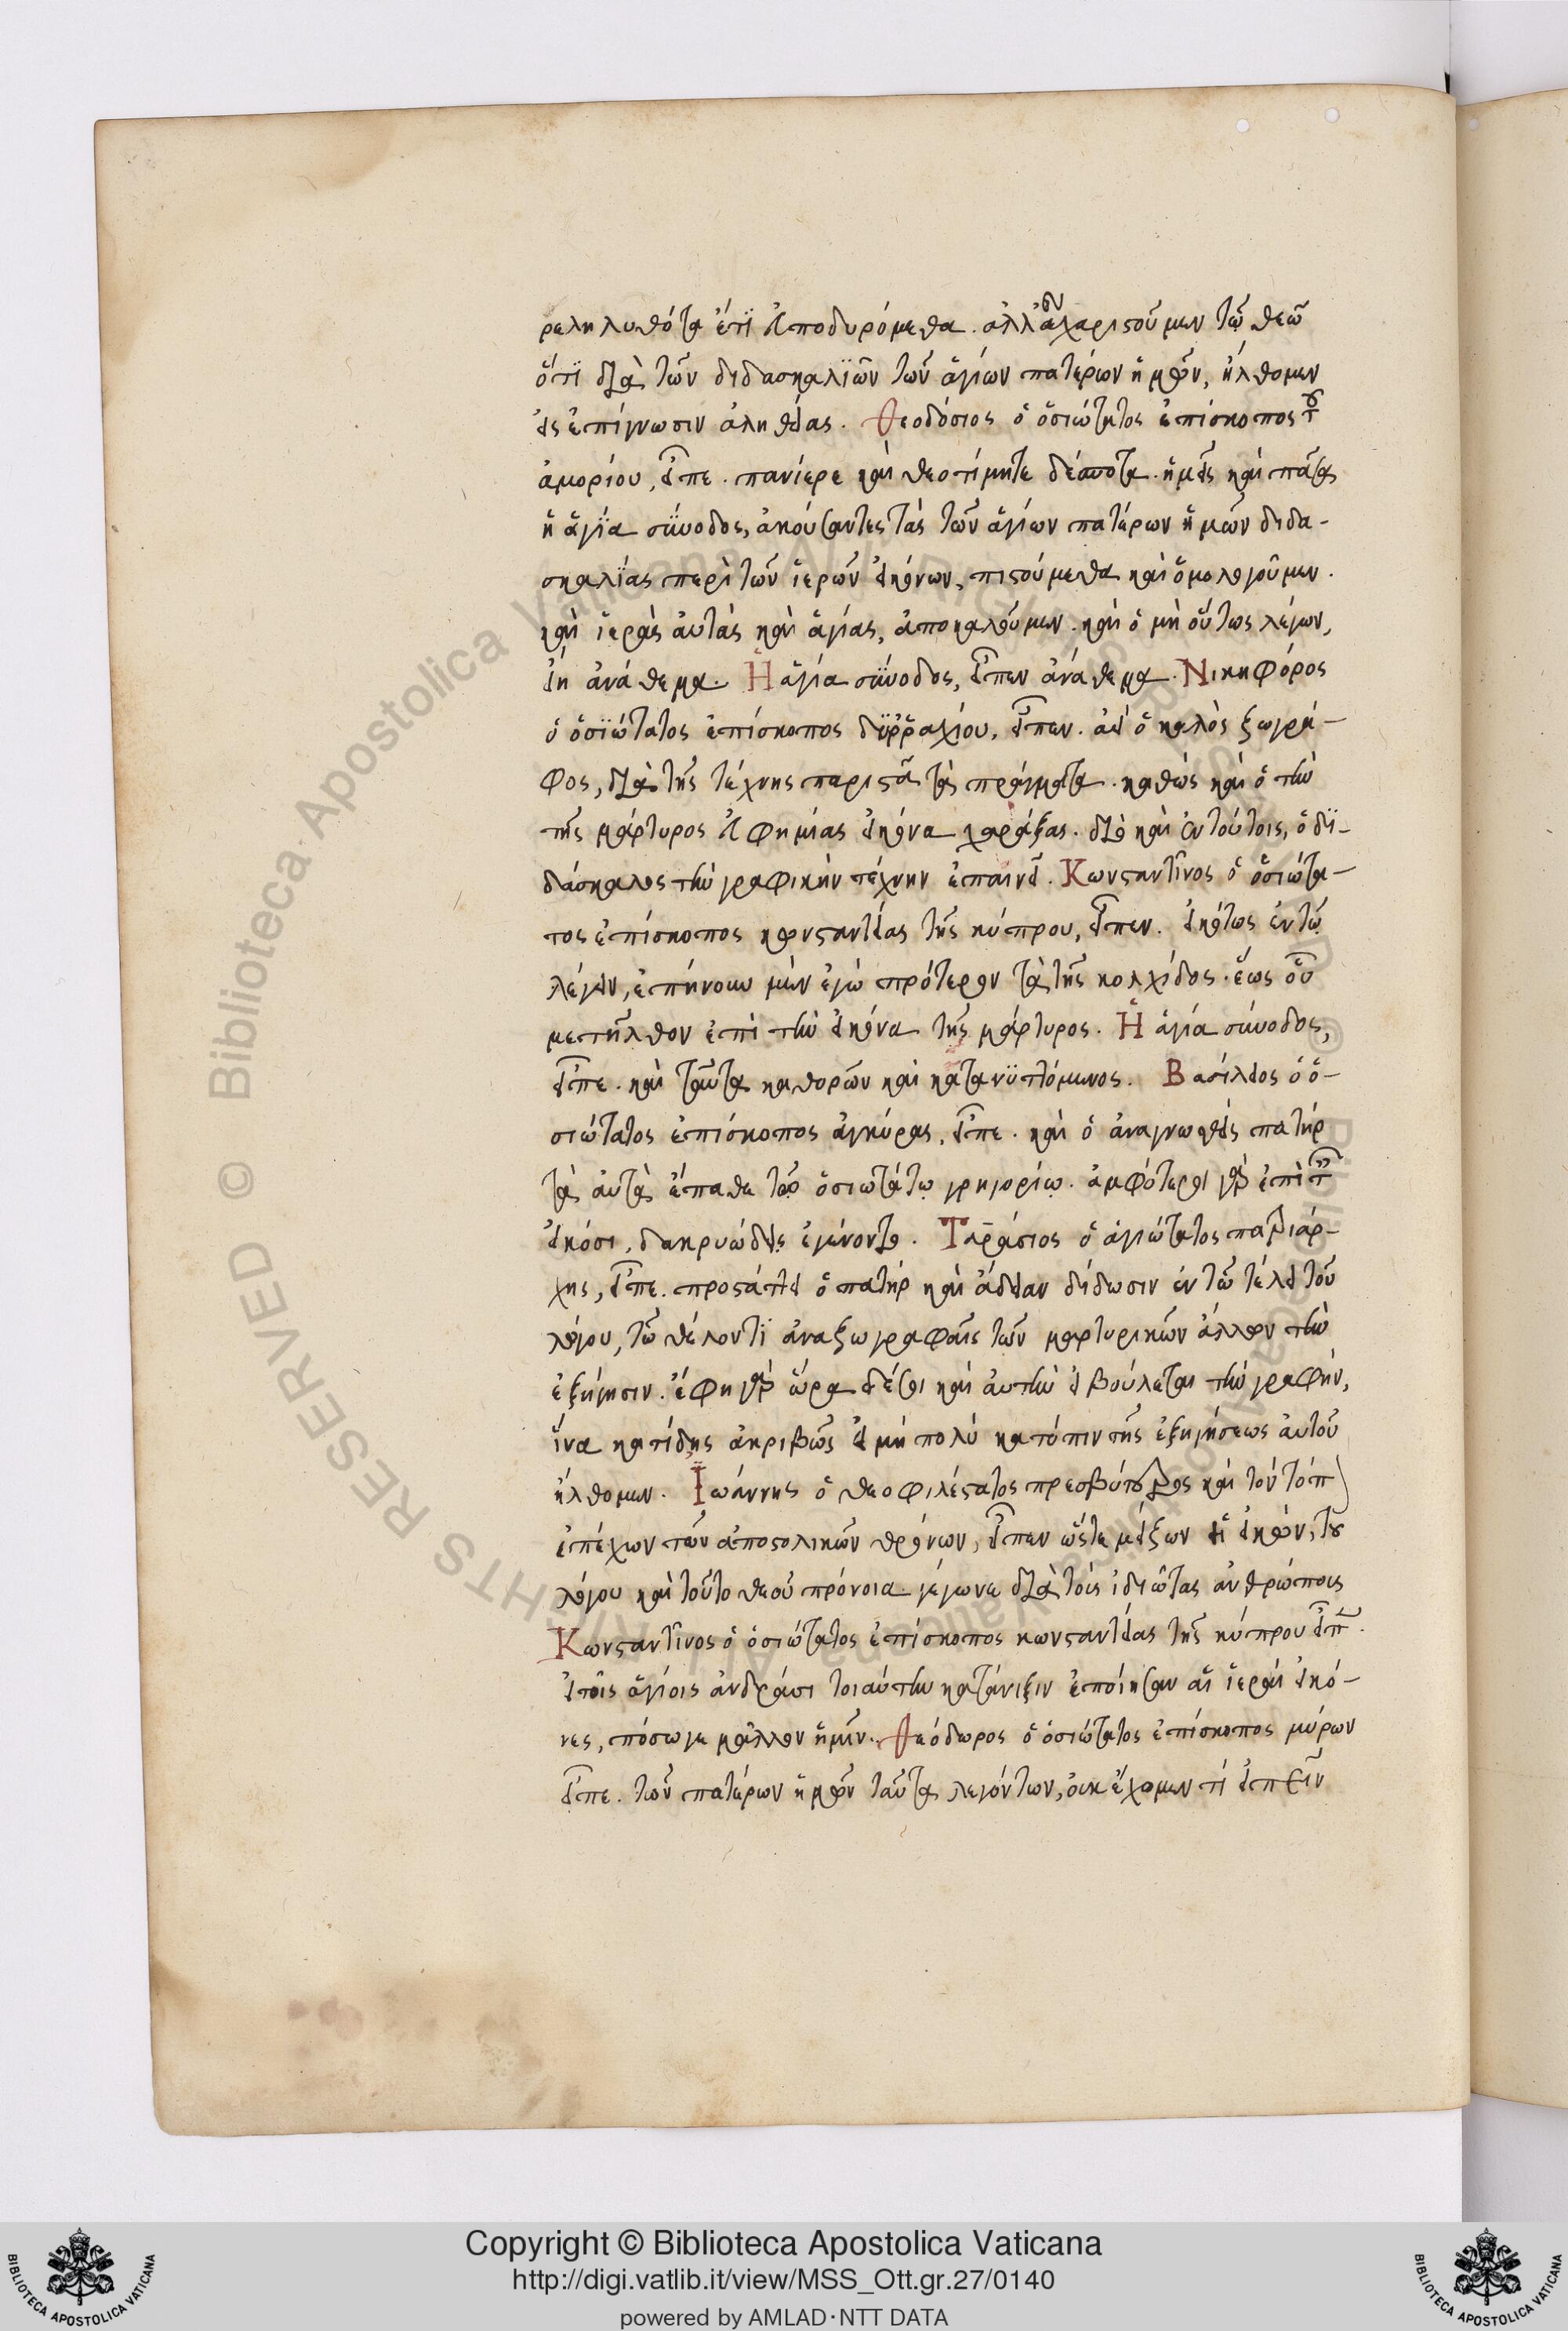 ρεληλυθότα ἔτι ἀποδυρόμεθα. ἀλλ εὐχαριστοῦμεν τῷ θεῷ
ὅτϊ διὰ τῶν διδασκαλϊῶν τῶν ἁγίων πατέρων ἡμῶν, ἤλθομεν
εἰς ἐπίγνωσιν ἀληθείας. Θεοδόσιος ὁ ὁσιώτατος ἐπίσκοπος τοῦ
ἀμορίου, εἶπε. πανίερε καὶ θεοτίμητε δέσποτα. ἡμεῖς καὶ πᾶσα
ἡ ἁγία σύνοδος, ἀκούσαντες τὰς τῶν ἁγίων πατέρων ἡμῶν διδα-
σκαλΐας περὶ τῶν ἱερῶν εἰκόνων, πιστούμεθα καὶ ὁμολογοῦμεν.
καὶ ἱερὰς αὐτὰς καὶ ἁγίας, ἀποκαλοῦμεν. καὶ ὁ μὴ οὕτως λέγων,
εἴη ἀνάθεμα. Ἡ ἁγία σύνοδος, εἶπεν ἀνάθεμα. Νικηφόρος
ὁ ὁσϊώτατος ἐπίσκοπος δυῤῥαχίου, εἶπεν. ἀεὶ ὁ καλὸς ζωγρά-
φος, διὰ τῆς τέχνης παριστᾶ τὰ πράγματα. καθὼς καὶ ὁ τὴν
τῆς μάρτυρος εὐφημίας εἰκόνα χαράξας. διὸ καὶ ἐν τούτοις, ὁ δϊ-
δάσκαλος τὴν γραφικὴν τέχνην ἐπαινεῖ. Κωνσταντῖνος ὁ ὁσιώτα-
τος ἐπίσκοπος κωνσταντείας τῆς κύπρου, εἶπεν. εἰκότως ἐν τῷ
λέγειν, ἐπήνουν μὲν ἐγὼ πρότερον τὰ τῆς κολχίδος. ἕως οὗ
μετῆλθον ἐπὶ τὴν εἰκόνα τῆς μάρτυρος. Ἡ ἁγία σύνοδος,
εἶπε. καὶ ταῦτα καθορῶν καὶ κατανϋττόμενος. Βασίλειος ὁ ὁ-
σιώτατος ἐπίσκοπος ἀγκύρας, εἶπε. καὶ ὁ ἀναγνωσθεὶς πατὴρ
τὰ αὐτὰ ἔπαθε τῷ ὁσιωτάτῳ γρηγορίῳ. ἀμφότεροι γὰρ ἐπὶ τῶν
εἰκόσι, δακρυώδεις ἐγένοντο. Ταράσιος ὁ ἁγιώτατος πατριάρ-
χης, εἶπε. προστάττει ὁ πατὴρ καὶ ἄδειαν δίδωσιν ἐν τῷ τέλει τοῦ
λόγου, τῷ θέλοντϊ ἀναζωγραφαῖς τῶν μαρτυρικῶν ἄθλων τὴν
ἐξήγησιν. ἔφη γὰρ ὥρα δέ σοι καὶ αὐτὴν εἰ βούλεται τὴν γραφὴν,
ἵνα κατίδης ἀκριβῶς εἰ μὴ πολὺ κατόπιν τῆς ἐξηγήσεως αὐτοῦ
ἤλθομεν. Ἰωάννης ὁ θεοφιλέστατος πρεσβύτερος καὶ τὸν τόπ
ἐπέχων τῶν ἀποστολικῶν θρόνων, εἶπεν ὥστε μείζων ἡ εἰκὼν, τοῦ
λόγου καὶ τοῦτο θεοῦ πρόνοια γέγονε διὰ τοὺς ἰδιώτας ἀνθρώπους
Κωνσταντῖνος ὁ ὁσιώτατος ἐπίσκοπος κωνσταντείας τῆς κύπρου εἶπ.
εἰ τοῖς ἁγίοις ἀνδράσι τοιαύτην κατάνιξιν ἐποίησαν αἱ ἱεραὶ εἰκό-
νες, πόσωγε μᾶλλον ἡμῖν. Θεόδωρος ὁ ὁσιώτατος ἐπίσκοπος μύρων
εἶπε. τῶν πατέρων ἡμῶν ταῦτα λεγόντων, οὐκ ἔχομεν τί εἰπεῖν